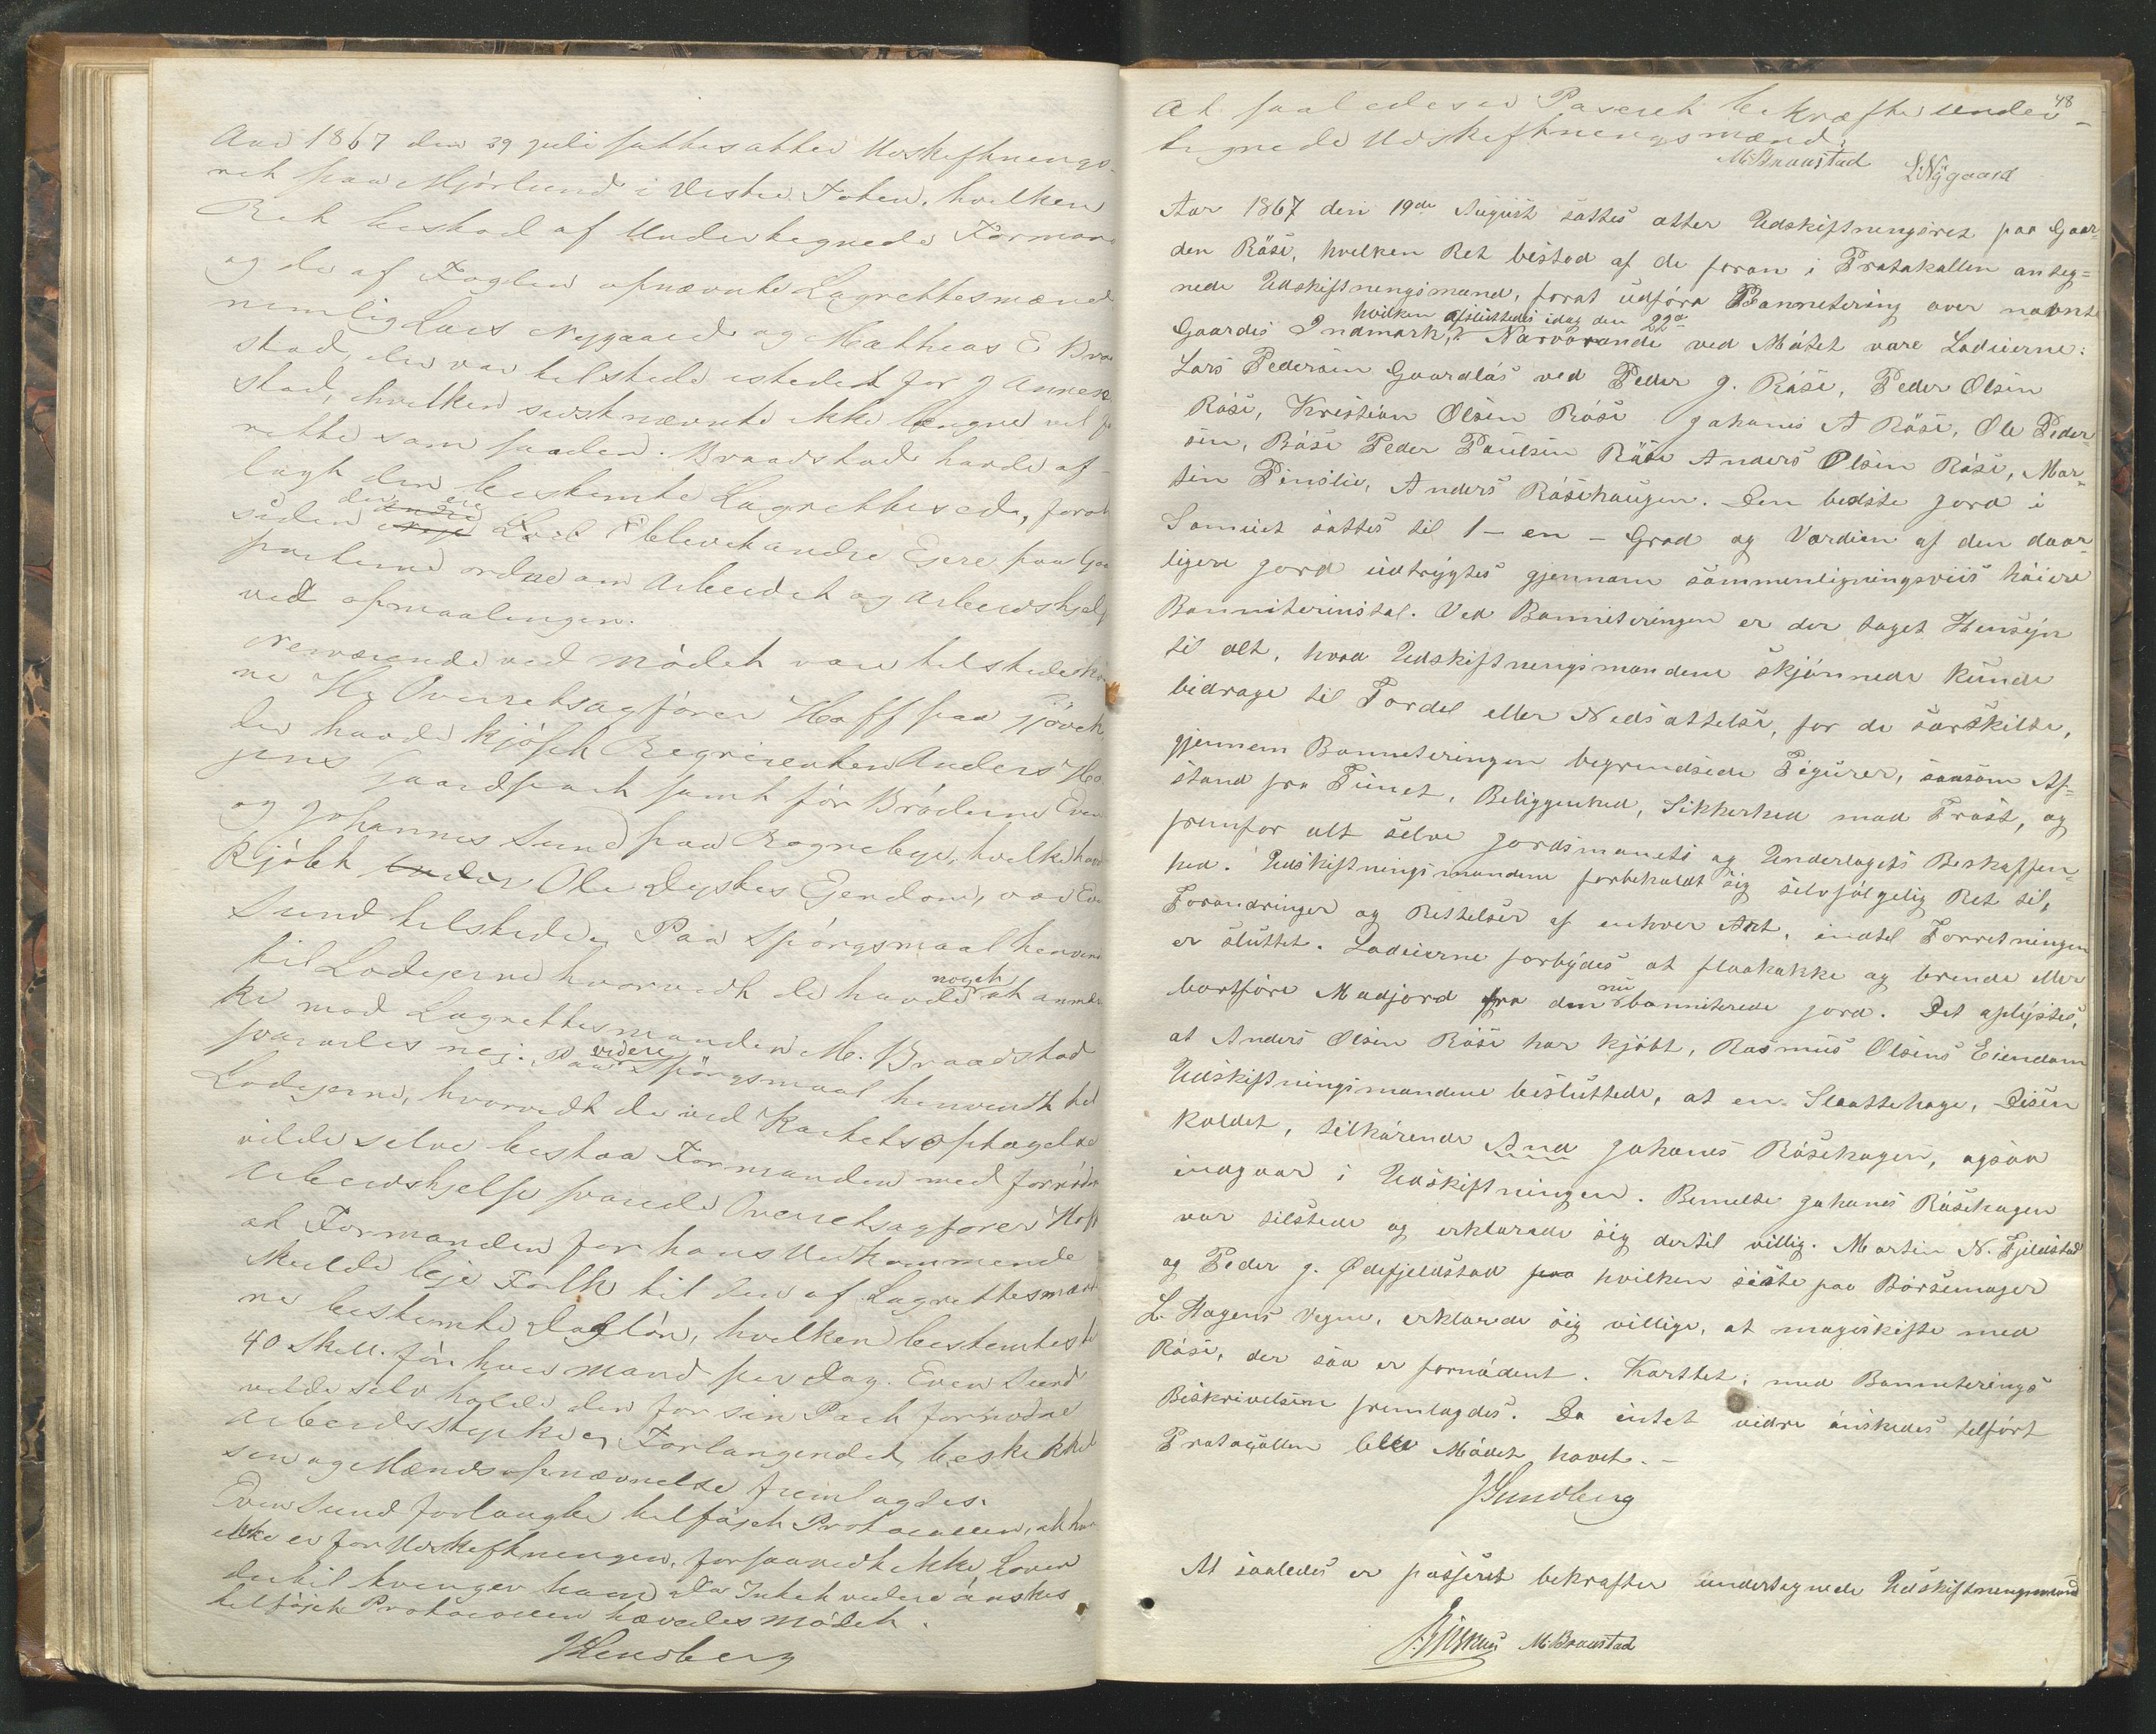 Aar 1867 den 29 Juli sattes atter Udskiftnings-
ret paa Mjørlund i Vestre Toten, hvilken
Ret bestod af Undertegnede Forman
og de af Fogden opnævnte Lagrettesmænd
nemlig Lars Nygaard og Mathias E Braa
stad, der var tilstede istedet for J Annex
stad, hvilken sidstnævnte ikke længre vil
rette som saadan. Braadstad havde af-
lagt den bestemte Lagrettesed, forat
siden den ene Lod blevet andre Ejere paa Gaa
parterne ordne om Arbeidet og Arbeidshjelp
ved opmaalingen.
Nerværende ved Mödet vare tilstede
ne Hr Overretsagförer Hoff paa Gjövek,
der havde kjöbt Regrisenten Anders Ho
jens Gaardpart samt för Bröderne Even
og Johannes Sund paa Rognebye, hvilke hav
Kjöbt Ole Dystes Ejendom, var Even
Sund tilstede. Paa Spörgsmaal henven
til Lodejerne hvorvidt de havde noget at anmær
ke mod Lagrettesmanden M. Braadstad
svaredes nej. Paa videre Spörgsmaal henvendt til
Lodejerne, hvorvidt de ved Kartets Optagelse
vilde selve bestaa Formanden med fornöden
Arbeidshjelp svarede Overretsagförer Hoff
at Formanden for hans Vedkommende
skulde leje Folk til den af Lagrettesmænde
ne bestemte Daglön, hvilken bestemtes til
40 Skill. för hver Mand per Dag. Even Sund
vilde selv holde den for sin Part fornödne
Arbeidsstyrke. Forlangendet, beskikkel
sen og Mændsopnævnelse fremlagdes.
Even Sund forlangte tilföjet Protocollen, at han
ikke er for Udskiftningen, forsaavidt ikke Loven
dertil tvinger ham. Da Intet videre ønskes
tilföjet Protocollen hævedes Mödet.
J Sundberg
48
At saaledes er Paseret bekræfter under-
tegnede Udskiftningsmænd.
M. Braastad L. Nÿgaard
Aar 1867 den 19de August sattes atter Udskiftningsret paa Gaar-
den Råse, hvilken Ret bestod af de foran i Pratakallen anteg=
nede Udskiftningsmænd, forat udföre Bannitering over nævnte
hvilken afsluttedes idag den 22de
Gaardes Indmark, Nærværende ved Mötet vare Lodeierne:
Lars Pedersen Gaardlös ved Peder J. Råse, Peder Olsen
Råse, Kristian Olsen Råse Jahanes A Råse, Ole Peder-
sen, Råse Peder Paulsen Råse Anders Olsen Råse, Mar-
tin Finslie, Anders Råsehaugen. Den bedste Jord i
Samiet sattes til 1 - en - Grad og Værdien af den daar-
ligere Jord udtrygtes gjennem sammenligningsviis höiere
Banniterinstal. Ved Banniteringen er der taget Hensyn
til alt, hvad Udskiftningsmændene skjönnede kunde
bidrage til Fordel eller Nedsættelse, for de særskilte,
gjennem Banneteringen begrændsede Figurer, saasom Af-
stand fra Tunet, Beliggenhed, Sikkerhed mod Frost, og
fremfor alt selve Jordsmonets og Underlagets Beskaffen-
hed. Udskiftningsmændene forbeholdt sig selvfölgelig Ret til,
Forandringer og Rettelser af enhver Art, indtil Forretningen
er sluttet. Lodeierne forbydes at flaahakke og brende eller
bortföre Madjord fra den nu banniterede Jord. Det oplystes,
at Anders Olsen Råse har kjöbt, Rasmus Olsens Eiendom
Udskiftningsmændene besluttede, at en Slaattehage, Disen
kaldet, tilhörende And Jahanes Råsehagen, ogsaa
indgaar i Udskiftningen. Bemelte Jahanes Råsehagen
var tilstede og erklærede sig dertil villig. Martin N. Fjeldstad
og Peder J. Ødefjeldstad paa hvilken siste paa Börsemager
L. Hagens Vegne, erklærede sig villige, at mageskifte med
Råse, der saa er fornödent. Karttet, med Banneterings
Beskrivelsen fremlagdes. Da intet vidre önskedes tilfört
Protogollen blev Mödet hævet. -
J Sundberg
At saaledes er passeret bekræfter undertegnede Udskiftningsmænd
M. Braastad